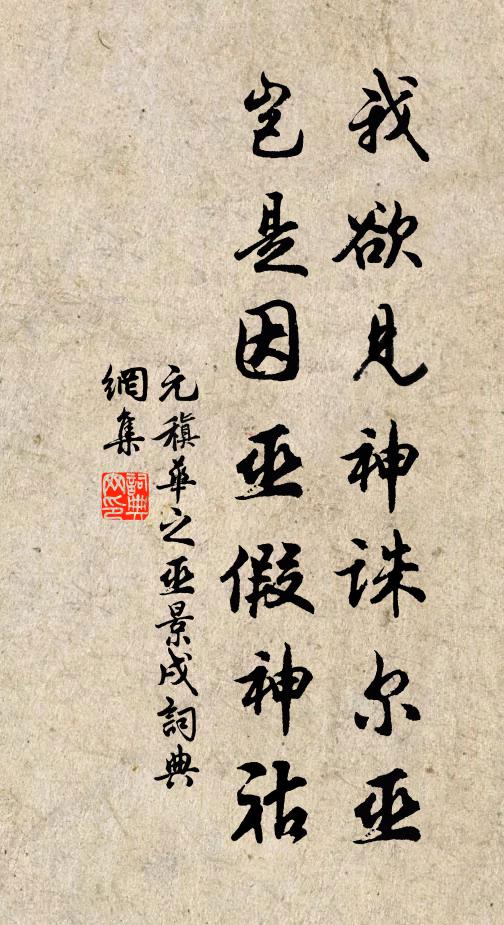 我欲见神诛尔巫
岂是因巫假神祜
元稹華之巫景戌詞典
網集
詞典
网印